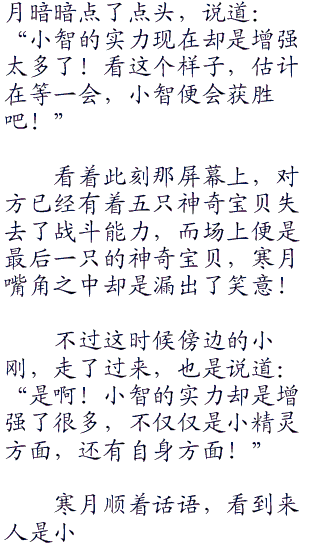 月暗暗点了点头，说道：
“小智的实力现在却是增强
太多了！看这个样子，估计
在等一会，小智便会获胜
吧！”
看着此刻那屏幕上，对
方已经有着五只神奇宝贝失
去了战斗能力，而场上便是
最后一只的神奇宝贝，寒月
嘴角之中却是漏出了笑意！
不过这时候傍边的小
刚，走了过来，也是说道：
“是啊！小智的实力却是增
强了很多，不仅仅是小精灵
方面，还有自身方面！”
寒月顺着话语，看到来
人是小